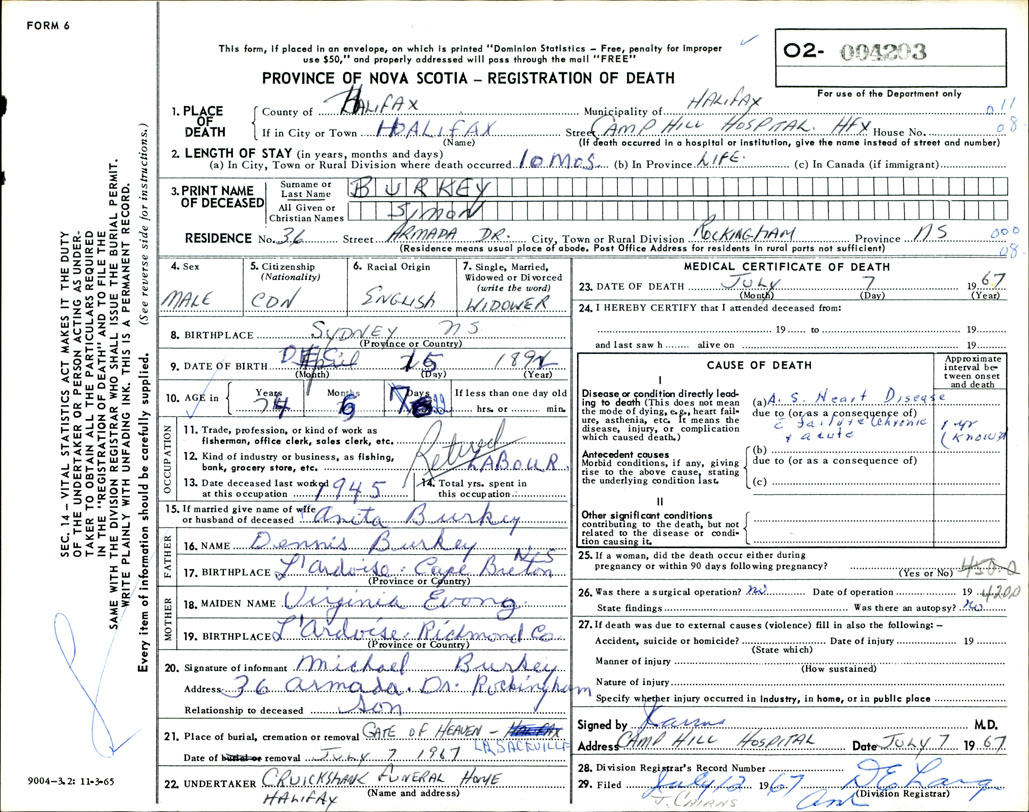 FORM 6
This form, if placed in an envelope, on which is printed "Dominion Statistics – Free, penalty for improper
use $50," and properly addressed will pass through the mail "FREE"
PROVINCE OF NOVA SCOTIA – REGISTRATION OF DEATH
O2- 004203
For use of the Department only
1. PLACE OF DEATH
County of HALIFAX Municipality of HALIFAX 011
If in City or Town HALIFAX Street CAMP HILL HOSPITAL. HFX House No. 08
(Name) (If death occurred in a hospital or institution, give the name instead of street and number)
2. LENGTH OF STAY (in years, months and days)
(a) In City, Town or Rural Division where death occurred 10 MOS (b) In Province LIFE. (c) In Canada (if immigrant)
3. PRINT NAME OF DECEASED
Surname or Last Name BURKEY
All Given or Christian Names SIMON
RESIDENCE No. 36 Street ARMADA DR. City, Town or Rural Division ROCKINGHAM Province NS 000
(Residence means usual place of abode. Post Office Address for residents in rural parts not sufficient) 08.
4. Sex MALE
5. Citizenship (Nationality) CDN
6. Racial Origin ENGLISH
7. Single, Married, Widowed or Divorced (write the word) WIDOWER
8. BIRTHPLACE SYDNEY NS
(Province or Country)
9. DATE OF BIRTH 15 1892
(Month) (Day) (Year)
10. AGE in Years 74 Months 6 Days If less than one day
hrs. or min.
OCCUPATION
11. Trade, profession, or kind of work as
fisherman, office clerk, sales clerk, etc. Retired
12. Kind of industry or business, as fishing,
bank, grocery store, etc. LABOUR.
13. Date deceased last worked
at this occupation 1945
14. Total yrs. spent in
this occupation
15. If married give name of wife
or husband of deceased Anita Burkey
FATHER
16. NAME Dennis Burkey
17. BIRTHPLACE L'Ardoise. Cape Breton N.S
(Province or Country)
MOTHER
18. MAIDEN NAME Virginia Evong
19. BIRTHPLACE L'Ardoise. Richmond Co
(Province or Country)
20. Signature of informant Michael Burkey
Address 36 Armada. Dr. Rockingham
Relationship to deceased son
21. Place of burial, cremation or removal GATE OF HEAVEN –
LR SACKVILLE
Date of burial or removal JULY 7 1967
22. UNDERTAKER CRUICKSHANK FUNERAL HOME
HALIFAX (Name and address)
MEDICAL CERTIFICATE OF DEATH
23. DATE OF DEATH JULY 7 1967
(Month) (Day) (Year)
24. I HEREBY CERTIFY that I attended deceased from:
19 to 19
and last saw h alive on 19
CAUSE OF DEATH
Approximate interval between onset and death
I
Disease or condition directly leading to death (This does not mean the mode of dying, e.g., heart failure, asthenia, etc. It means the disease, injury, or complication which caused death.)
(a) A. S. Heart Disease
due to (or as a consequence of)
c failure chronic
+ acute
1 yr
(known)
Antecedent causes
Morbid conditions, if any, giving rise to the above cause, stating the underlying condition last.
(b)
due to (or as a consequence of)
(c)
II
Other significant conditions
contributing to the death, but not related to the disease or condition causing it.
25. If a woman, did the death occur either during
pregnancy or within 90 days following pregnancy?
(Yes or No)
26. Was there a surgical operation? No Date of operation 19 4200
State findings Was there an autopsy? No
27. If death was due to external causes (violence) fill in also the following: –
Accident, suicide or homicide? Date of injury 19
(State which)
Manner of injury
(How sustained)
Nature of injury
Specify whether injury occurred in Industry, in home, or in public place
Signed by M.D.
Address CAMP HILL HOSPITAL Date JULY 7 1967
28. Division Registrar's Record Number
29. Filed July 12 1967
(Division Registrar)
J. CAIRNS
SEC. 14 – VITAL STATISTICS ACT MAKES IT THE DUTY
OF THE UNDERTAKER OR PERSON ACTING AS UNDER-
TAKER TO OBTAIN ALL THE PARTICULARS REQUIRED
IN THE "REGISTRATION OF DEATH" AND TO FILE THE
SAME WITH THE DIVISION REGISTRAR WHO SHALL ISSUE THE BURIAL PERMIT.
WRITE PLAINLY WITH UNFADING INK. THIS IS A PERMANENT RECORD.
Every item of information should be carefully supplied. (See reverse side for instructions.)
9004-3.2: 11-3-65